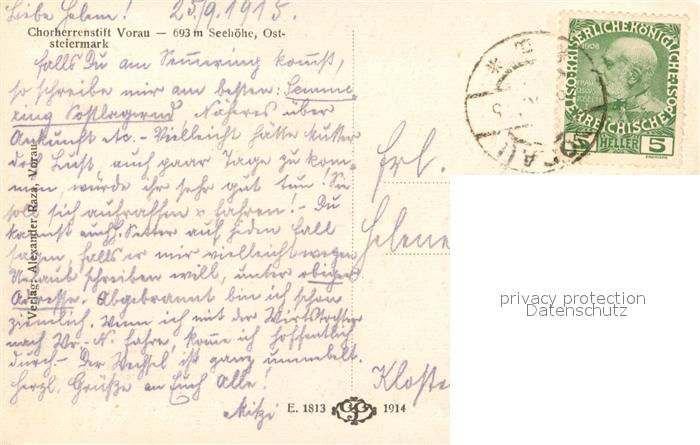 Liebe Helene! 25/9. 1915.
Chorherrenstift Vorau — 693 m Seehöhe, Ost-
steiermark
falls Du am Semmering kommst,
so schreibe mir am besten: Semme-
ring Postlagernd, Näheres über
Ankunft etc. – Vielleicht hätte Mutter
doch Lust, auch paar Tage zu kom-
men, würde ihr sehr gut tun! Sie
soll sich aufraffen & fahren! – Du
kannst auch H. Vetter auf jeden Fall
sagen, falls er mir vielleicht wegen
Urlaub schreiben will, unter obiger
Adresse. Abgebrannt bin ich schon
ziemlich. Wenn ich mit der Wirtstochter
nach Wr.-N. fahre, komme ich hoffentlich
durch – Der Wechsel ist ganz
herzl. Grüße an Euch Alle!
Mitzi
Verlag: Alexander Raza, Vorau
E. 1813 1914
Frl.
Helene
Kloste
KAISERLICHE KÖNIGLICHE
ÖSTERREICHISCHE
1908
5 HELLER 5
VORAU
privacy protection
Datenschutz